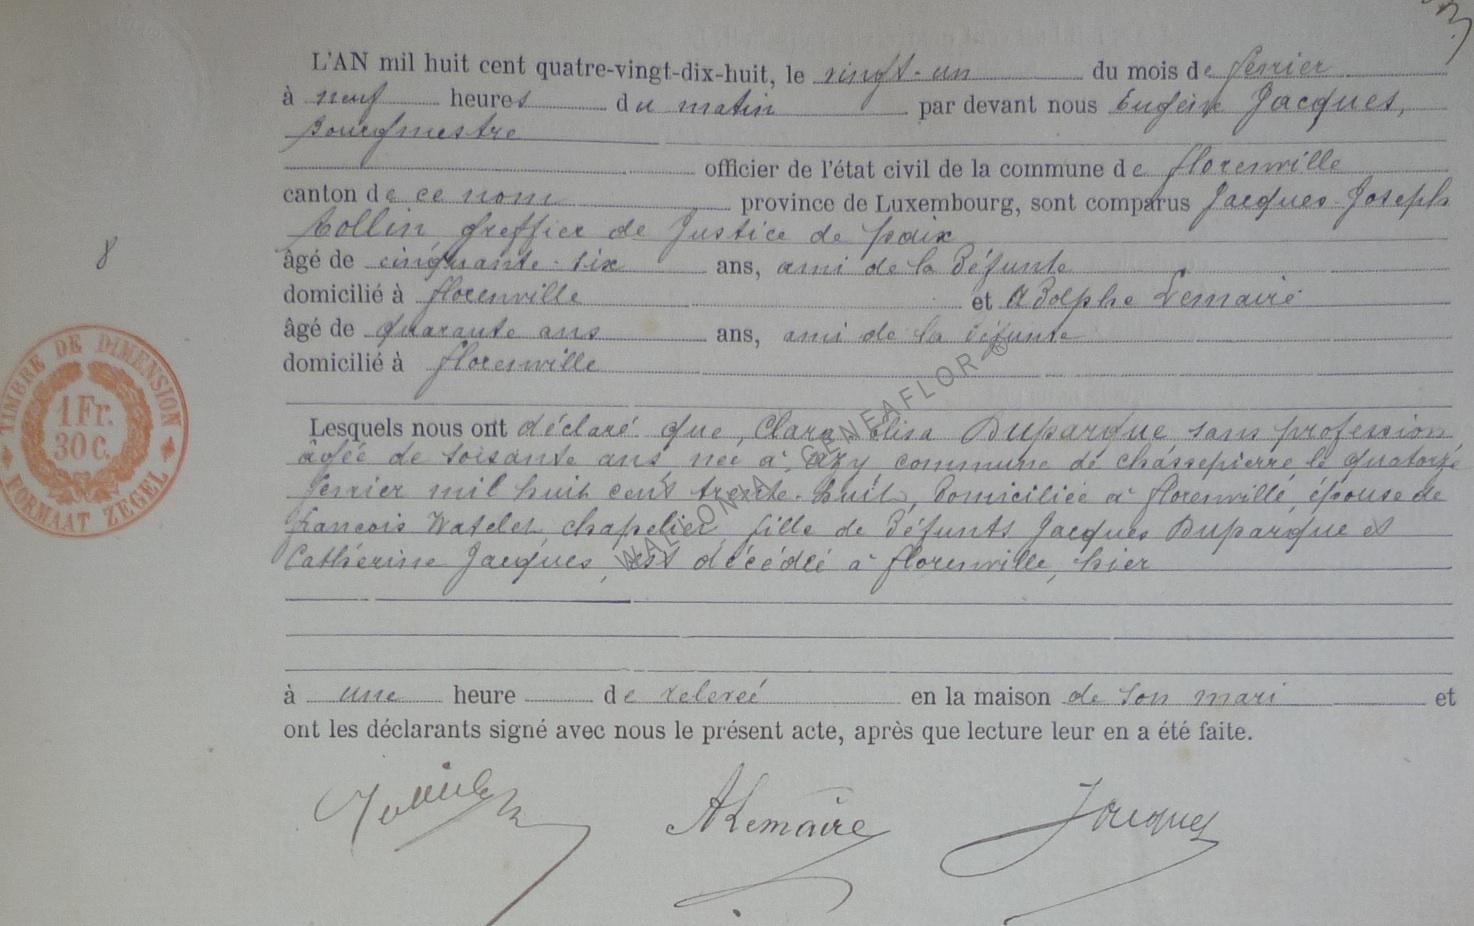 L'AN mil huit cent quatre-vingt-dix-huit, le vingt-un du mois de fevrier
à neuf heures du matin par devant nous Eugène Jacques,
Bourgmestre
officier de l'état civil de la commune de florenville
canton de ce nom province de Luxembourg, sont comparus Jacques-Joseph
Collin, greffier de Justice de paix
8
âgé de cinquante-six ans, ami de la défunte
domicilié à florenville et Adolphe Lemaire
âgé de quarante ans ans, ami de la défunte
domicilié à florenville
TIMBRE DE DIMENSION
1 Fr.
30 C.
FORMAAT ZEGEL
Lesquels nous ont déclaré que, Clara Elisa Duparque sans profession,
âgée de soixante ans, née à Azy, commune de chassepierre le quatorze
fevrier mil huit cent trente-huit, domiciliée à florenville, épouse de
francois Watelet, chapelier, fille de défunts Jacques Duparque et
Cathérine Jacques, est décédée à florenville, hier
WALLONIA GENEAFLOR ®
à une heure de relevée en la maison de son mari et
ont les déclarants signé avec nous le présent acte, après que lecture leur en a été faite.
ALemaire Jacques